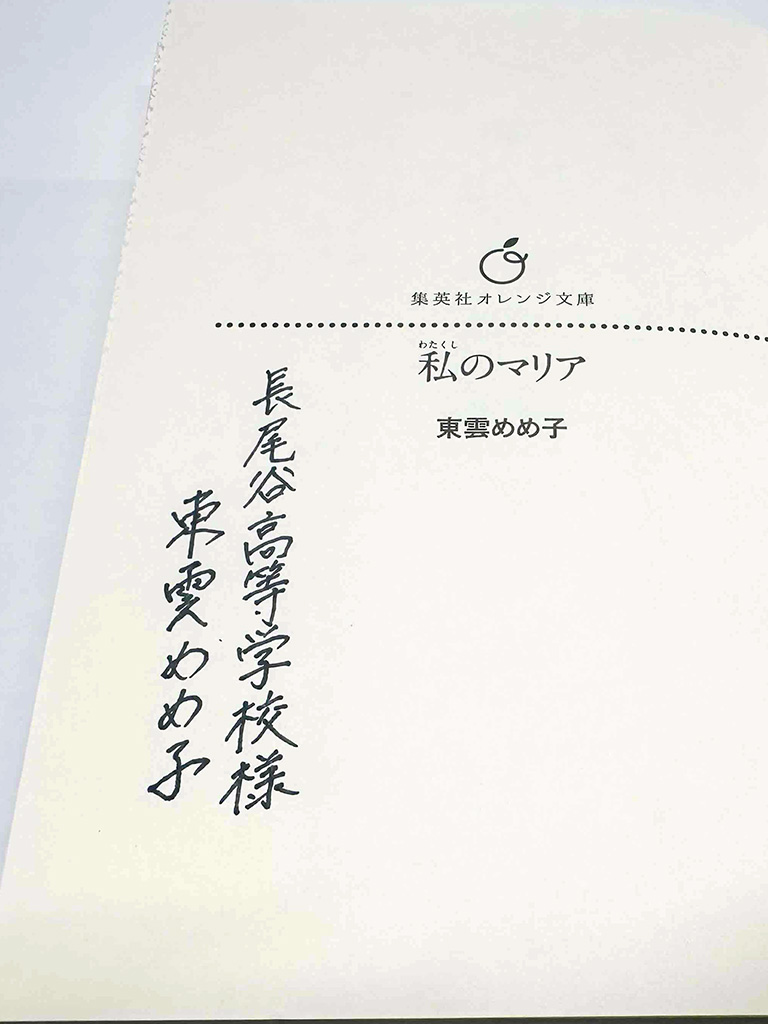 集英社オレンジ文庫
わたくし
私のマリア
東雲めめ子
長尾谷高等学校様
東雲めめ子